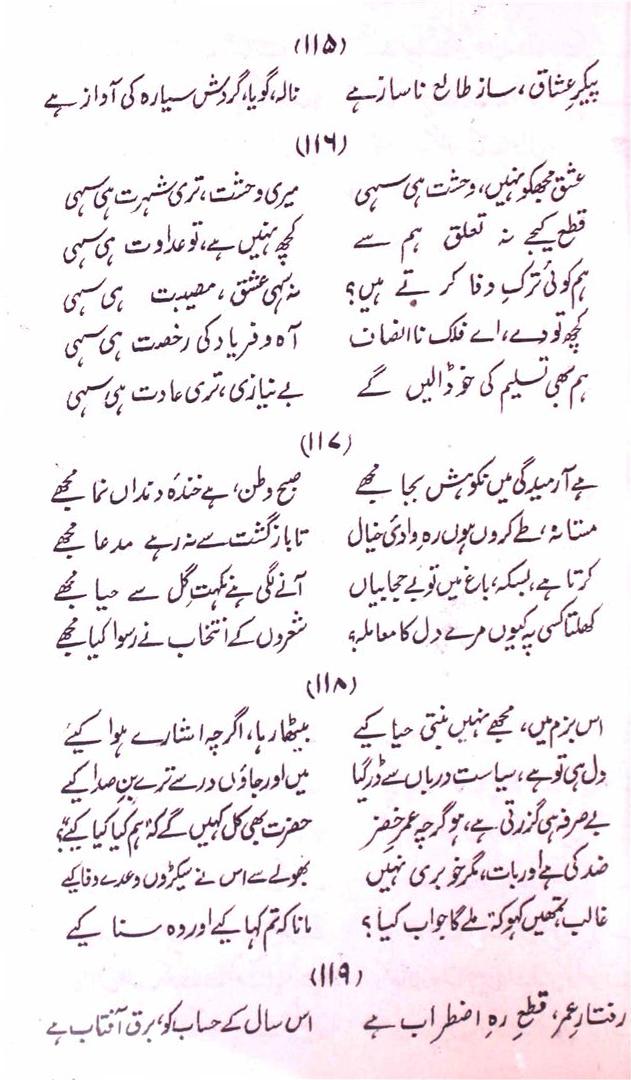 (۱۱۵)
پیکرِ عشاق، ساز طالع ناساز ہے نالہ، گویا، گردش سیارہ کی آواز ہے
(۱۱۶)
عشق مجھ کو نہیں، وحشت ہی سہی میری وحشت، تری شہرت ہی سہی
قطع کیجے نہ تعلق ہم سے کچھ نہیں ہے، تو عداوت ہی سہی
ہم کوئی ترکِ وفا کرتے ہیں؟ نہ سہی عشق، مصیبت ہی سہی
کچھ تو دے، اے فلک نا انصاف آہ و فریاد کی رخصت ہی سہی
ہم بھی تسلیم کی خو ڈالیں گے بے نیازی، تری عادت ہی سہی
(۱۱۷)
ہے آرمیدگی میں نکوہش بجا مجھے صبح وطن، ہے خندۂ دنداں نما مجھے
مستانہ، طے کروں ہوں رہِ وادیٔ خیال تا بازگشت سے نہ رہے مدعا مجھے
کرتا ہے، بسکہ، باغ میں تو بے حجابیاں آنے لگی ہے نکہتِ گل سے حیا مجھے
کھلتا کسی پہ کیوں مرے دل کا معاملہ؟ شعروں کے انتخاب نے رسوا کیا مجھے
(۱۱۸)
اس بزم میں، مجھے نہیں بنتی حیا کیے بیٹھا رہا، اگرچہ اشارے ہوا کیے
دل ہی تو ہے، سیاست درباں سے ڈر گیا میں اور جاؤں در سے ترے بِن صدا کیے
بے صرفہ ہی گزرتی ہے، ہو گرچہ عمرِ خضر حضرت بھی کل کہیں گے کہ "ہم کیا کیا کیے"؟
ضد کی ہے اور بات، مگر خو بری نہیں بھولے سے اس نے سیکڑوں وعدے وفا کیے
غالب تمھیں کہو کہ ملے گا جواب کیا؟ مانا کہ تم کہا کیے اور وہ سنا کیے
(۱۱۹)
رفتارِ عمر، قطعِ رہِ اضطراب ہے اس سال کے حساب کو، برق آفتاب ہے